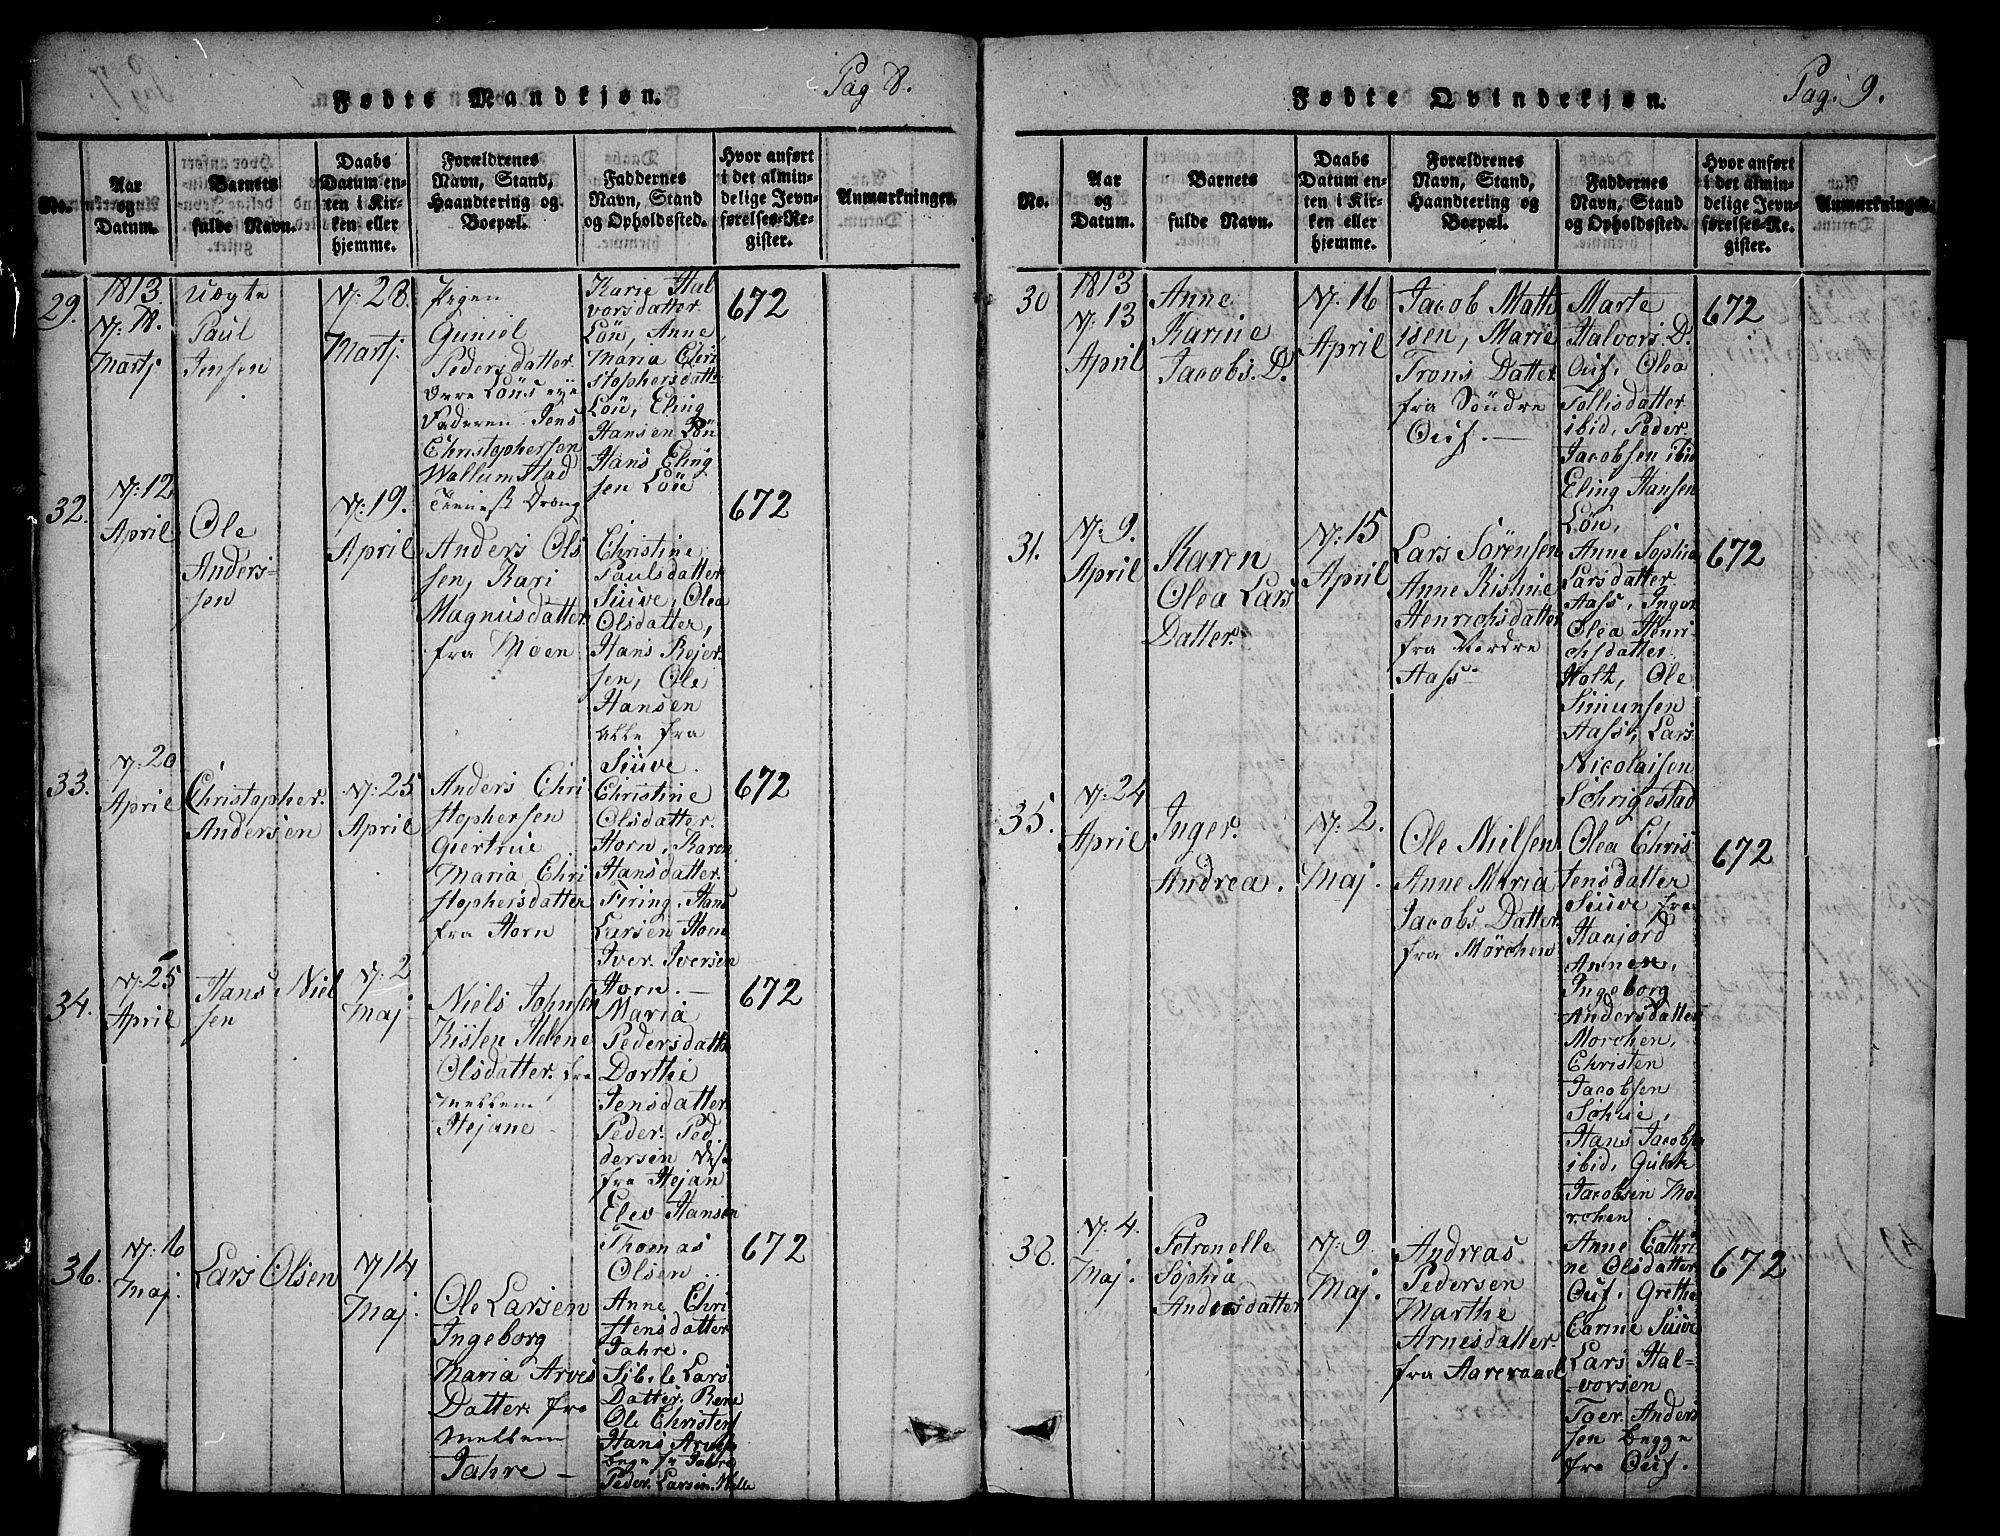 Pag 8.
Fødte Mandkjøn.
No.
Aar
og
Datum.
Barnets
fulde Navn.
Daabs
Datum en-
ten i Kir-
ken eller
hjemme.
Forældrenes
Navn, Stand,
Haandtering og
Boepæl.
Faddernes
Navn, Stand
og Opholdssted.
Hvor anført
i det almin-
delige Jevn-
førelses-Re-
gister.
Anmærkninger.
29.
1813
Martj
Uægte
Paul
Jensen
N: 28.
Martj
Pigen
Guniel
Pedersdatter
Faderen Jens
Christophersen
Wallumstad
Tieneste Dreng
Karie Hal
vorsdatter
Lön, Anne
Maria Chri
stophersdatt
Lön, Eling
Hansen Lön
Hans Eling
sen Lön
672
32.
N: 12
April
Ole
Anders-
sen
N: 19.
April
Anders Ols
sen, Kari
Magnusdatter
fra Moen
Christine
Paulsdatter
Siuve, Olea
Olsdatter,
Hans Rejer
sen, Ole
Hansen
alle fra
Siuve.
672
33.
N: 20
April
Christopher
Andersen
N: 25
April
Anders Chri
stophersen
Giertrue
Maria Chri
stophersdatter
fra Horn
Christine
Olsdatter
Horn, Karen
Hansdatter
Firing, Hans
Larsen Horn
Iver Iversen
Horn.
672
34.
N: 25
April
Hans Niel
sen
N: 2
Maj
Niels Johnsen
Kisten Helene
Olsdatter fra
mellem
Hejane
Maria
Pedersdatt
Dorthe
Jensdatter
Peder Ped
dersen
fra Hejan
Elev Hansen
Thomas
Olsen
672
36.
N: 6
Maj.
Lars Olsen
N 14
Maj.
Ole Larsen
Ingeborg
Maria Arves
Datter fra
mellem
Jahre
Anne Chri
stensdatter
Jahre.
Sibile Lars
Datter
Ole Christen
Hans
Jahre
Peder Larsen
672
Pag. 9.
Fødte Qvindekjøn.
No.
Aar
og
Datum.
Barnets
fulde Navn.
Daabs
Datum en-
ten i Kir-
ken eller
hjemme.
Forældrenes
Navn, Stand,
Haandtering og
Boepæl.
Faddernes
Navn, Stand
og Opholdssted.
Hvor anført
i det almin-
delige Jevn-
førelses-Re-
gister.
Anmærkninger.
30
1813
N: 13
April
Anne
Karine
Jacobs. D.
N: 16
April
Jacob Math
isen, Marie
Trons Datter
fra Söndre
Ouf.
Marte
Halvors. D.
Ouf, Olea
Tollisdatter
ibid, Peder
Jacobsen ibid
Eling Hansen
Lön,
672
31.
N: 9.
April
Karen
Olea Lars
Datter
N: 15
April
Lars Sörensen
Anne Kistine
Henrichsdatter
fra Nordre
Aass
Anne Sophie
Larsdatter
Aass, Inger
Olea Henri
chsdatter
Holt, Ole
Simunsen
Aass, Lars
Nicolaisen
Schrigestad
672
35.
N: 24
April
Inger
Andrea.
N: 2.
Maj.
Ole Nielsen
Anne Maria
Jacobs Datter
fra Mörchen
Olea Chris
tensdatter
Siuve fra
Haajord
Annen,
Ingeborg
Andersdatter
Morchen,
Christen
Jacobsen
Schie,
Hans Jacobse
ibid, Gulak
Jacobsen Mo
rchen
672
38.
N: 4.
Maj.
Petronelle
Sophia
Andersdatter
N: 9.
Maj.
Andreas
Pedersen
Marthe
Arnesdatter
fra Aarevaael
Anne Cathri
ne Olsdatter
Ouf, Grethe
Carine Siuve
Lars Hal-
vorsen
Toer Anders
sen begge
fra Ouf.
672